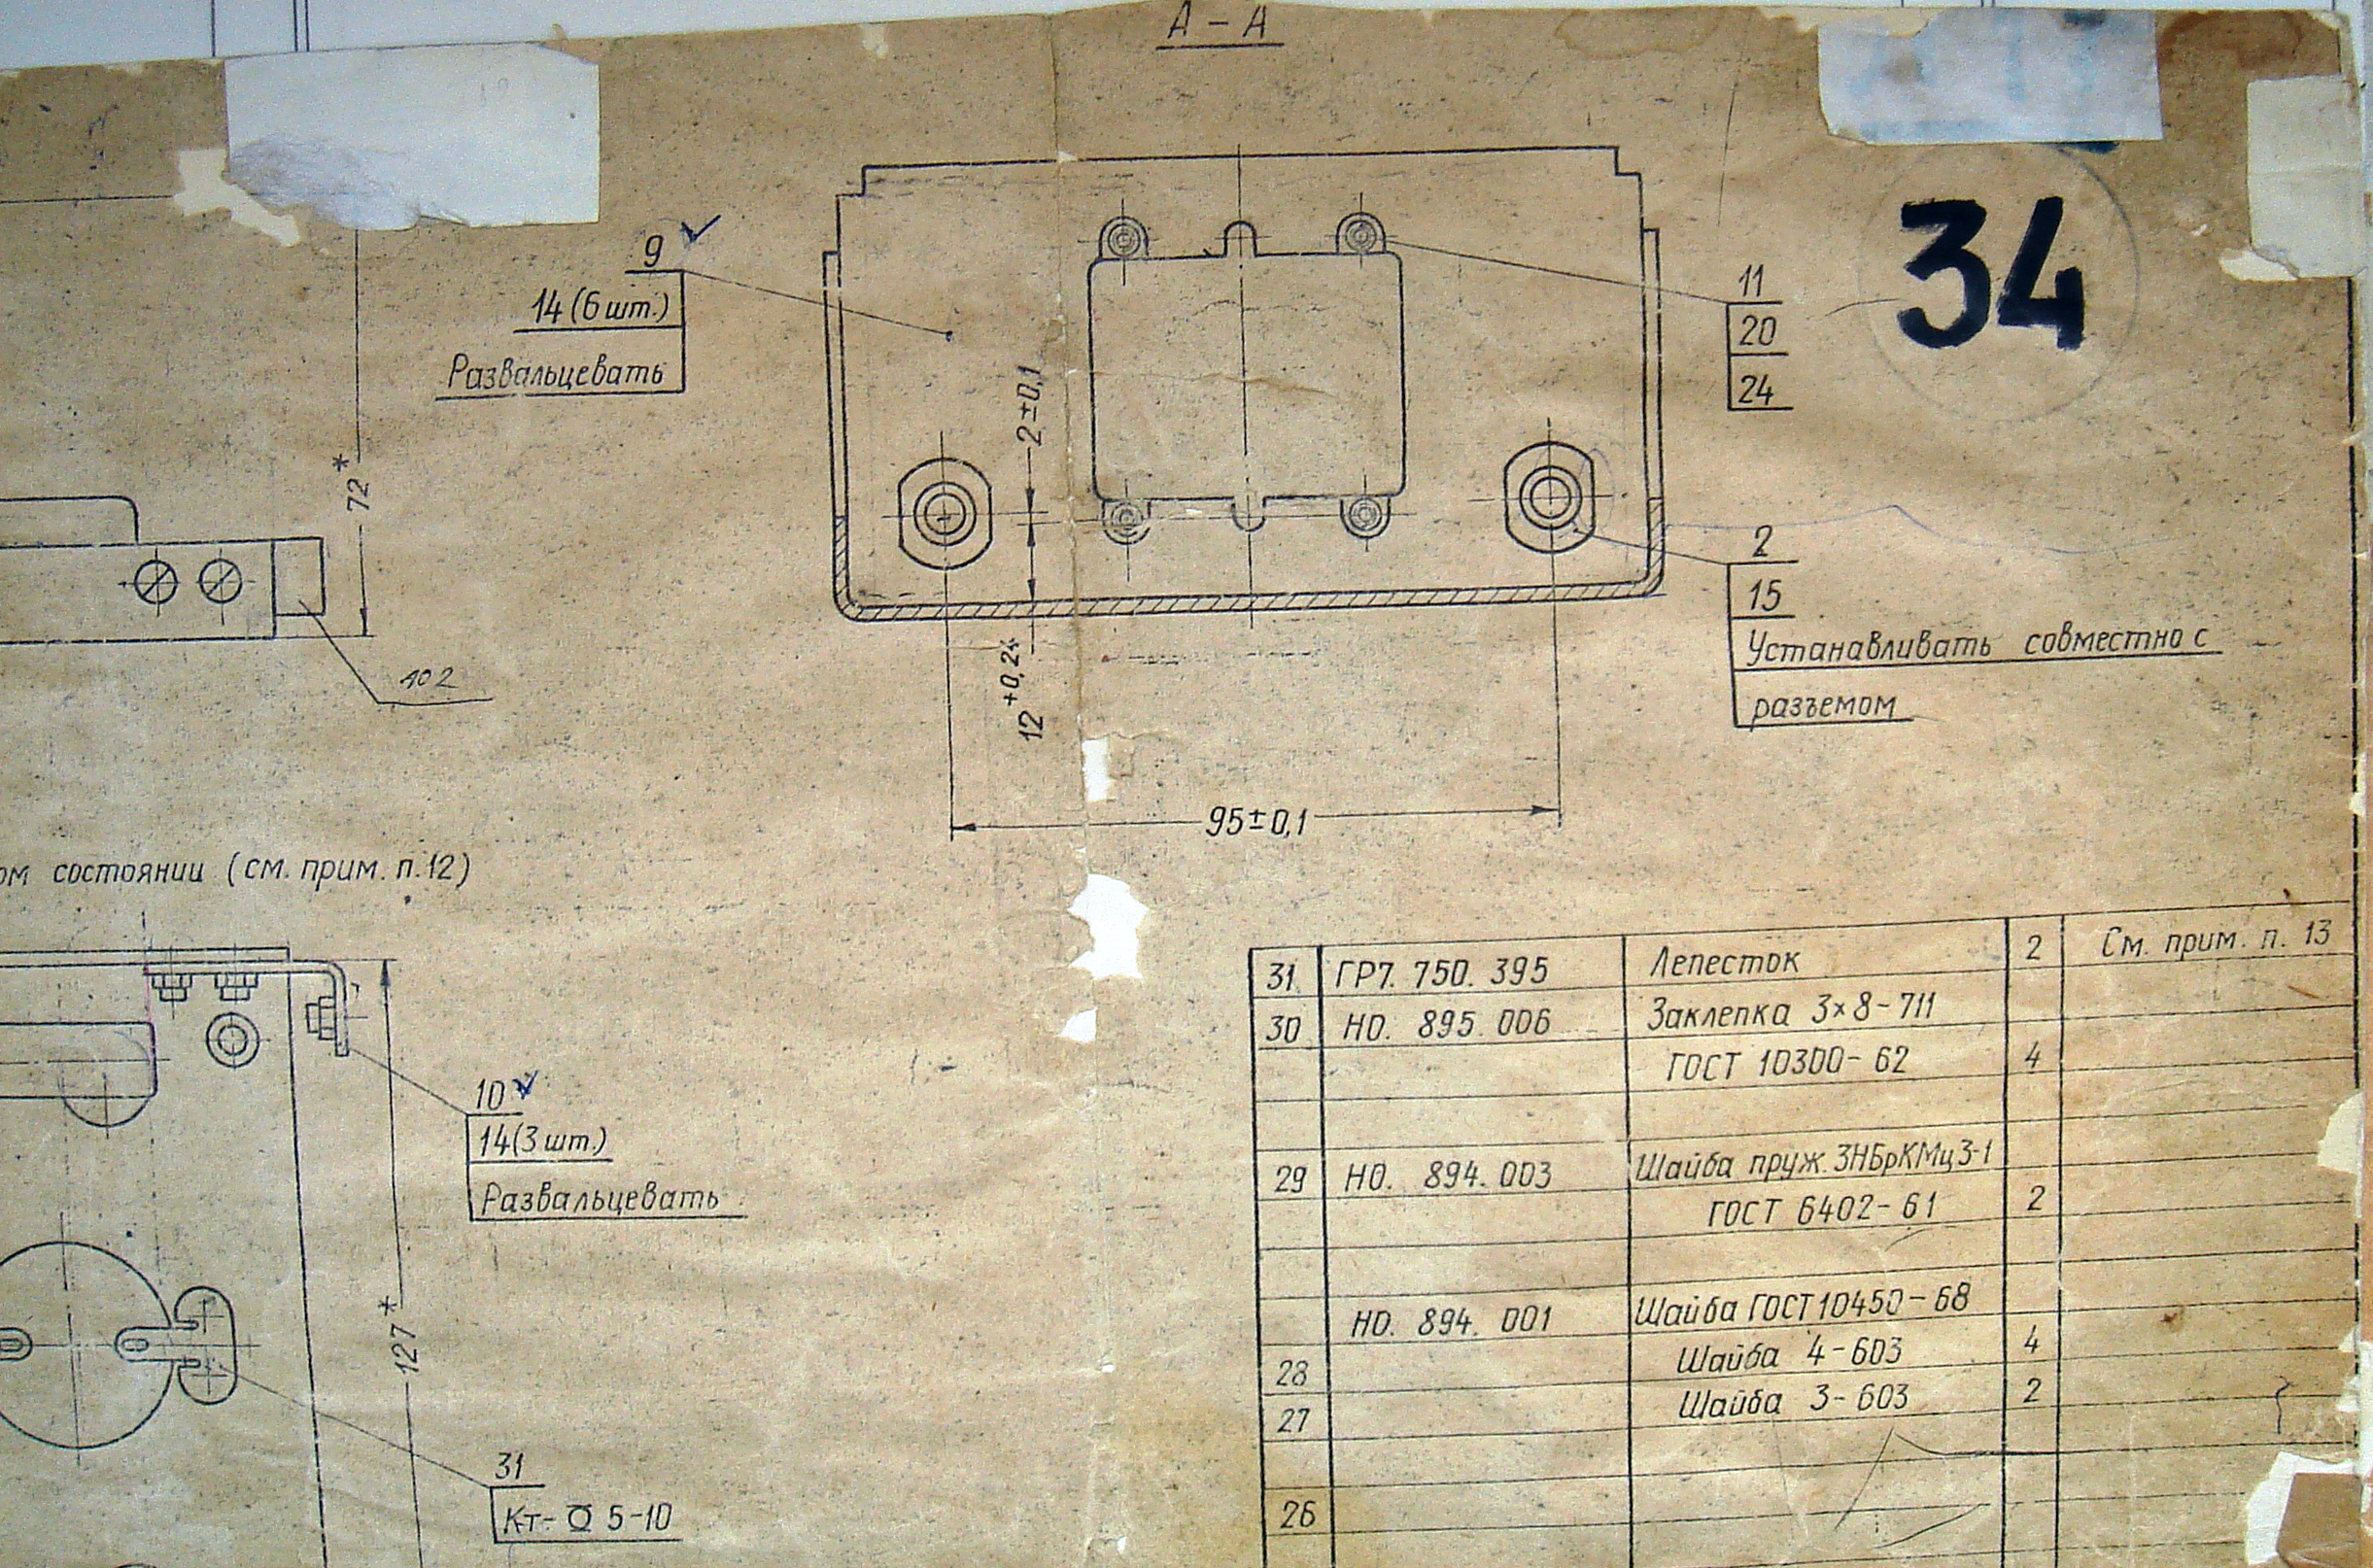 А – А
34
9
14 (6 шт.)
Развальцевать
11
20
24
2±0,1
72*
2
15
Устанавливать совместно с
разъемом
402
12 +0,24
95±0,1
ом состоянии (см. прим. п. 12)
10
14 (3 шт.)
Развальцевать
127*
31
Кт- 5-10
31 ГР7. 750. 395 Лепесток 2 См. прим. п. 13
30 НО. 895. 006 Заклепка 3×8-711
ГОСТ 10300-62 4
29 НО. 894. 003 Шайба пруж. 3НБрКМц3-1
ГОСТ 6402-61 2
НО. 894. 001 Шайба ГОСТ 10450-68
28 Шайба 4-603 4
27 Шайба 3-603 2
26